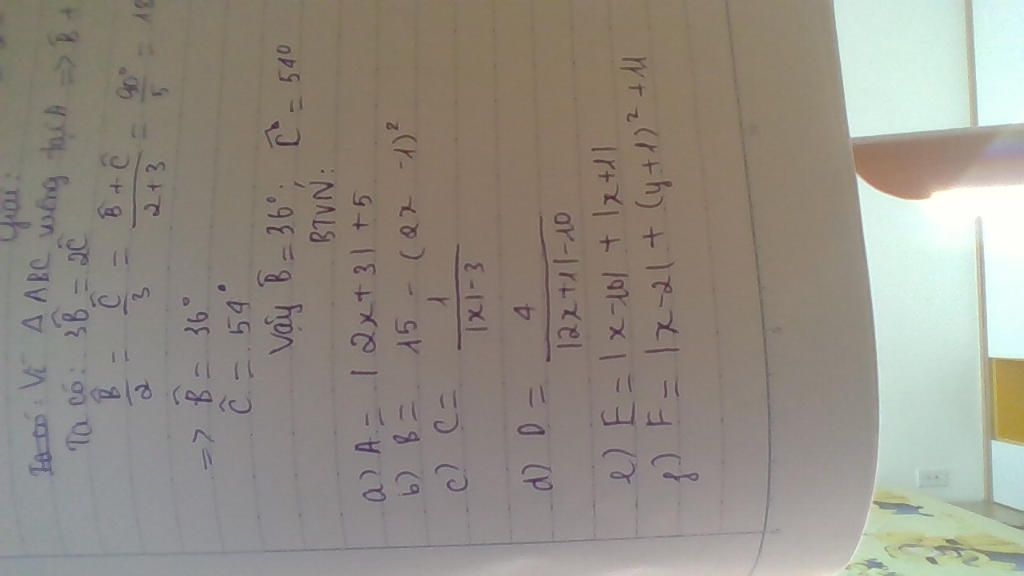 Giải:
Vì Δ ABC vuông tại A => B̂ +
Ta có: 3B̂ = 2Ĉ
B̂/2 = Ĉ/3 = (B̂ + Ĉ)/(2+3) = 90°/5 = 18
=> B̂ = 36°
Ĉ = 54°
Vậy B̂ = 36°; Ĉ = 54°
BTVN:
a) A = |2x+3| + 5
b) B = 15 - (2x -1)²
c) C = 1/(|x|-3)
d) D = 4/(|2x+1|-10)
e) E = |x-10| + |x+1|
f) F = |x-2| + (y+1)² + 11